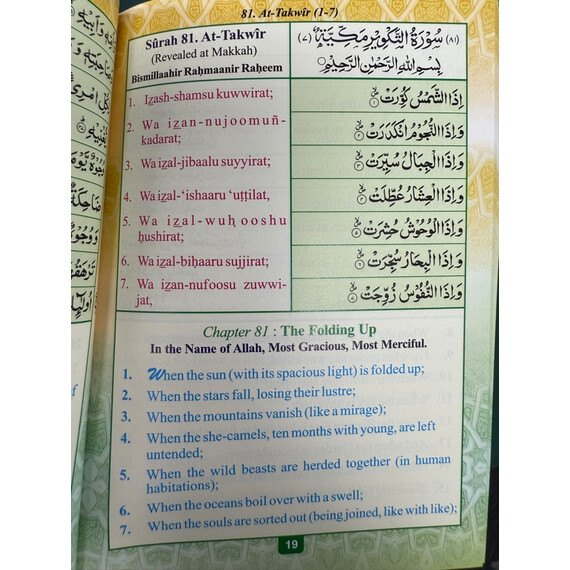 81. At-Takwîr (1-7)
Sûrah 81. At-Takwîr
(Revealed at Makkah)
Bismillaahir Raḥmaanir Raḥeem
(٨١) سُوْرَةُ التَّكْوِيْرِ مَكِّيَّةٌ (٧)
بِسْمِ اللّٰهِ الرَّحْمٰنِ الرَّحِيْمِ
1. Iz̲ash-shamsu kuwwirat;
اِذَا الشَّمْسُ كُوِّرَتْ ۝١
2. Wa iz̲an-nujoomuñ-
kadarat;
وَاِذَا النُّجُوْمُ انْكَدَرَتْ ۝٢
3. Wa iz̲al-jibaalu suyyirat;
وَاِذَا الْجِبَالُ سُيِّرَتْ ۝٣
4. Wa iz̲al-‘ishaaru ‘uṭṭilat,
وَاِذَا الْعِشَارُ عُطِّلَتْ ۝٤
5. Wa iz̲al-wuḥooshu
ḥushirat;
وَاِذَا الْوُحُوْشُ حُشِرَتْ ۝٥
6. Wa iz̲al-biḥaaru sujjirat;
وَاِذَا الْبِحَارُ سُجِّرَتْ ۝٦
7. Wa iz̲an-nufoosu zuwwi-
jat,
وَاِذَا النُّفُوْسُ زُوِّجَتْ ۝٧
Chapter 81 : The Folding Up
In the Name of Allah, Most Gracious, Most Merciful.
1. When the sun (with its spacious light) is folded up;
2. When the stars fall, losing their lustre;
3. When the mountains vanish (like a mirage);
4. When the she-camels, ten months with young, are left
untended;
5. When the wild beasts are herded together (in human
habitations);
6. When the oceans boil over with a swell;
7. When the souls are sorted out (being joined, like with like);
19